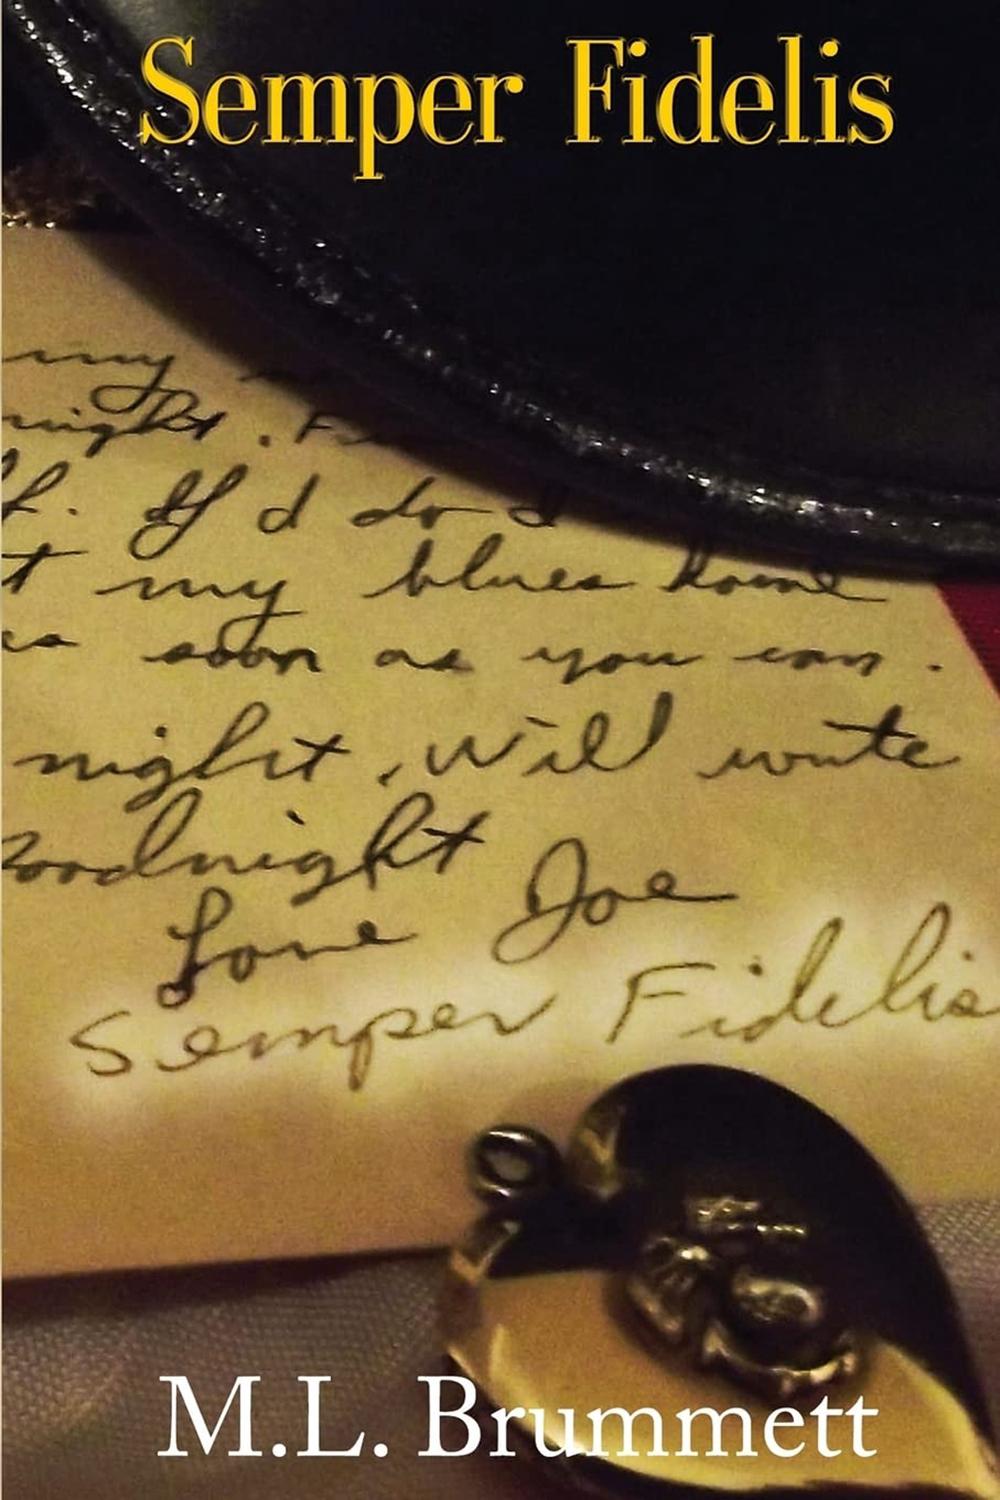 Semper Fidelis
my
night.
If I do I
my blues home
soon as you can.
night. Will write
Goodnight
Love Joe
Semper Fidelis
M.L. Brummett